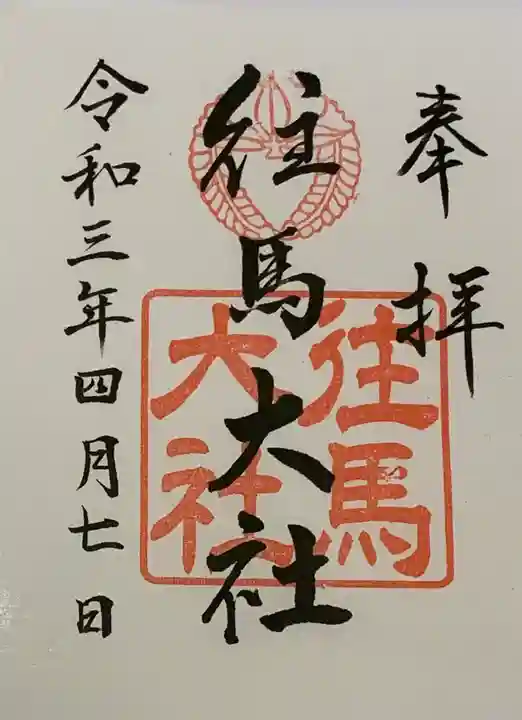 奉拝
往馬大社
往馬大社
令和三年四月七日